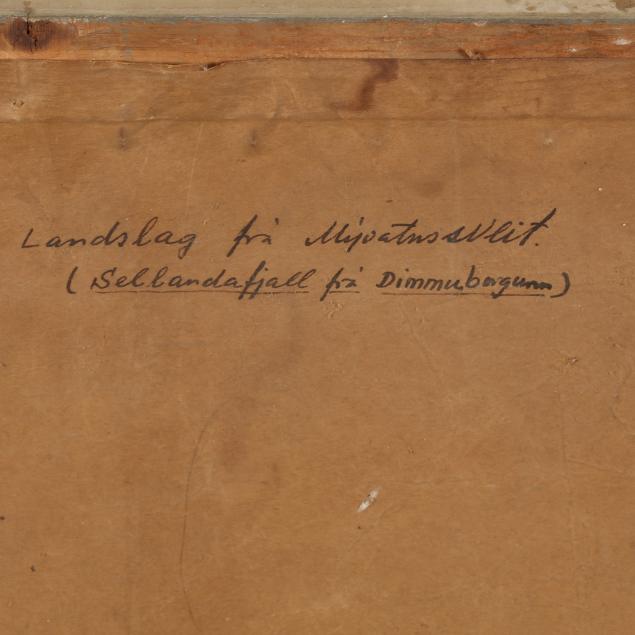 Landslag frá MývatnssVeit.
(Sellandafjall frá Dimmuborgum)